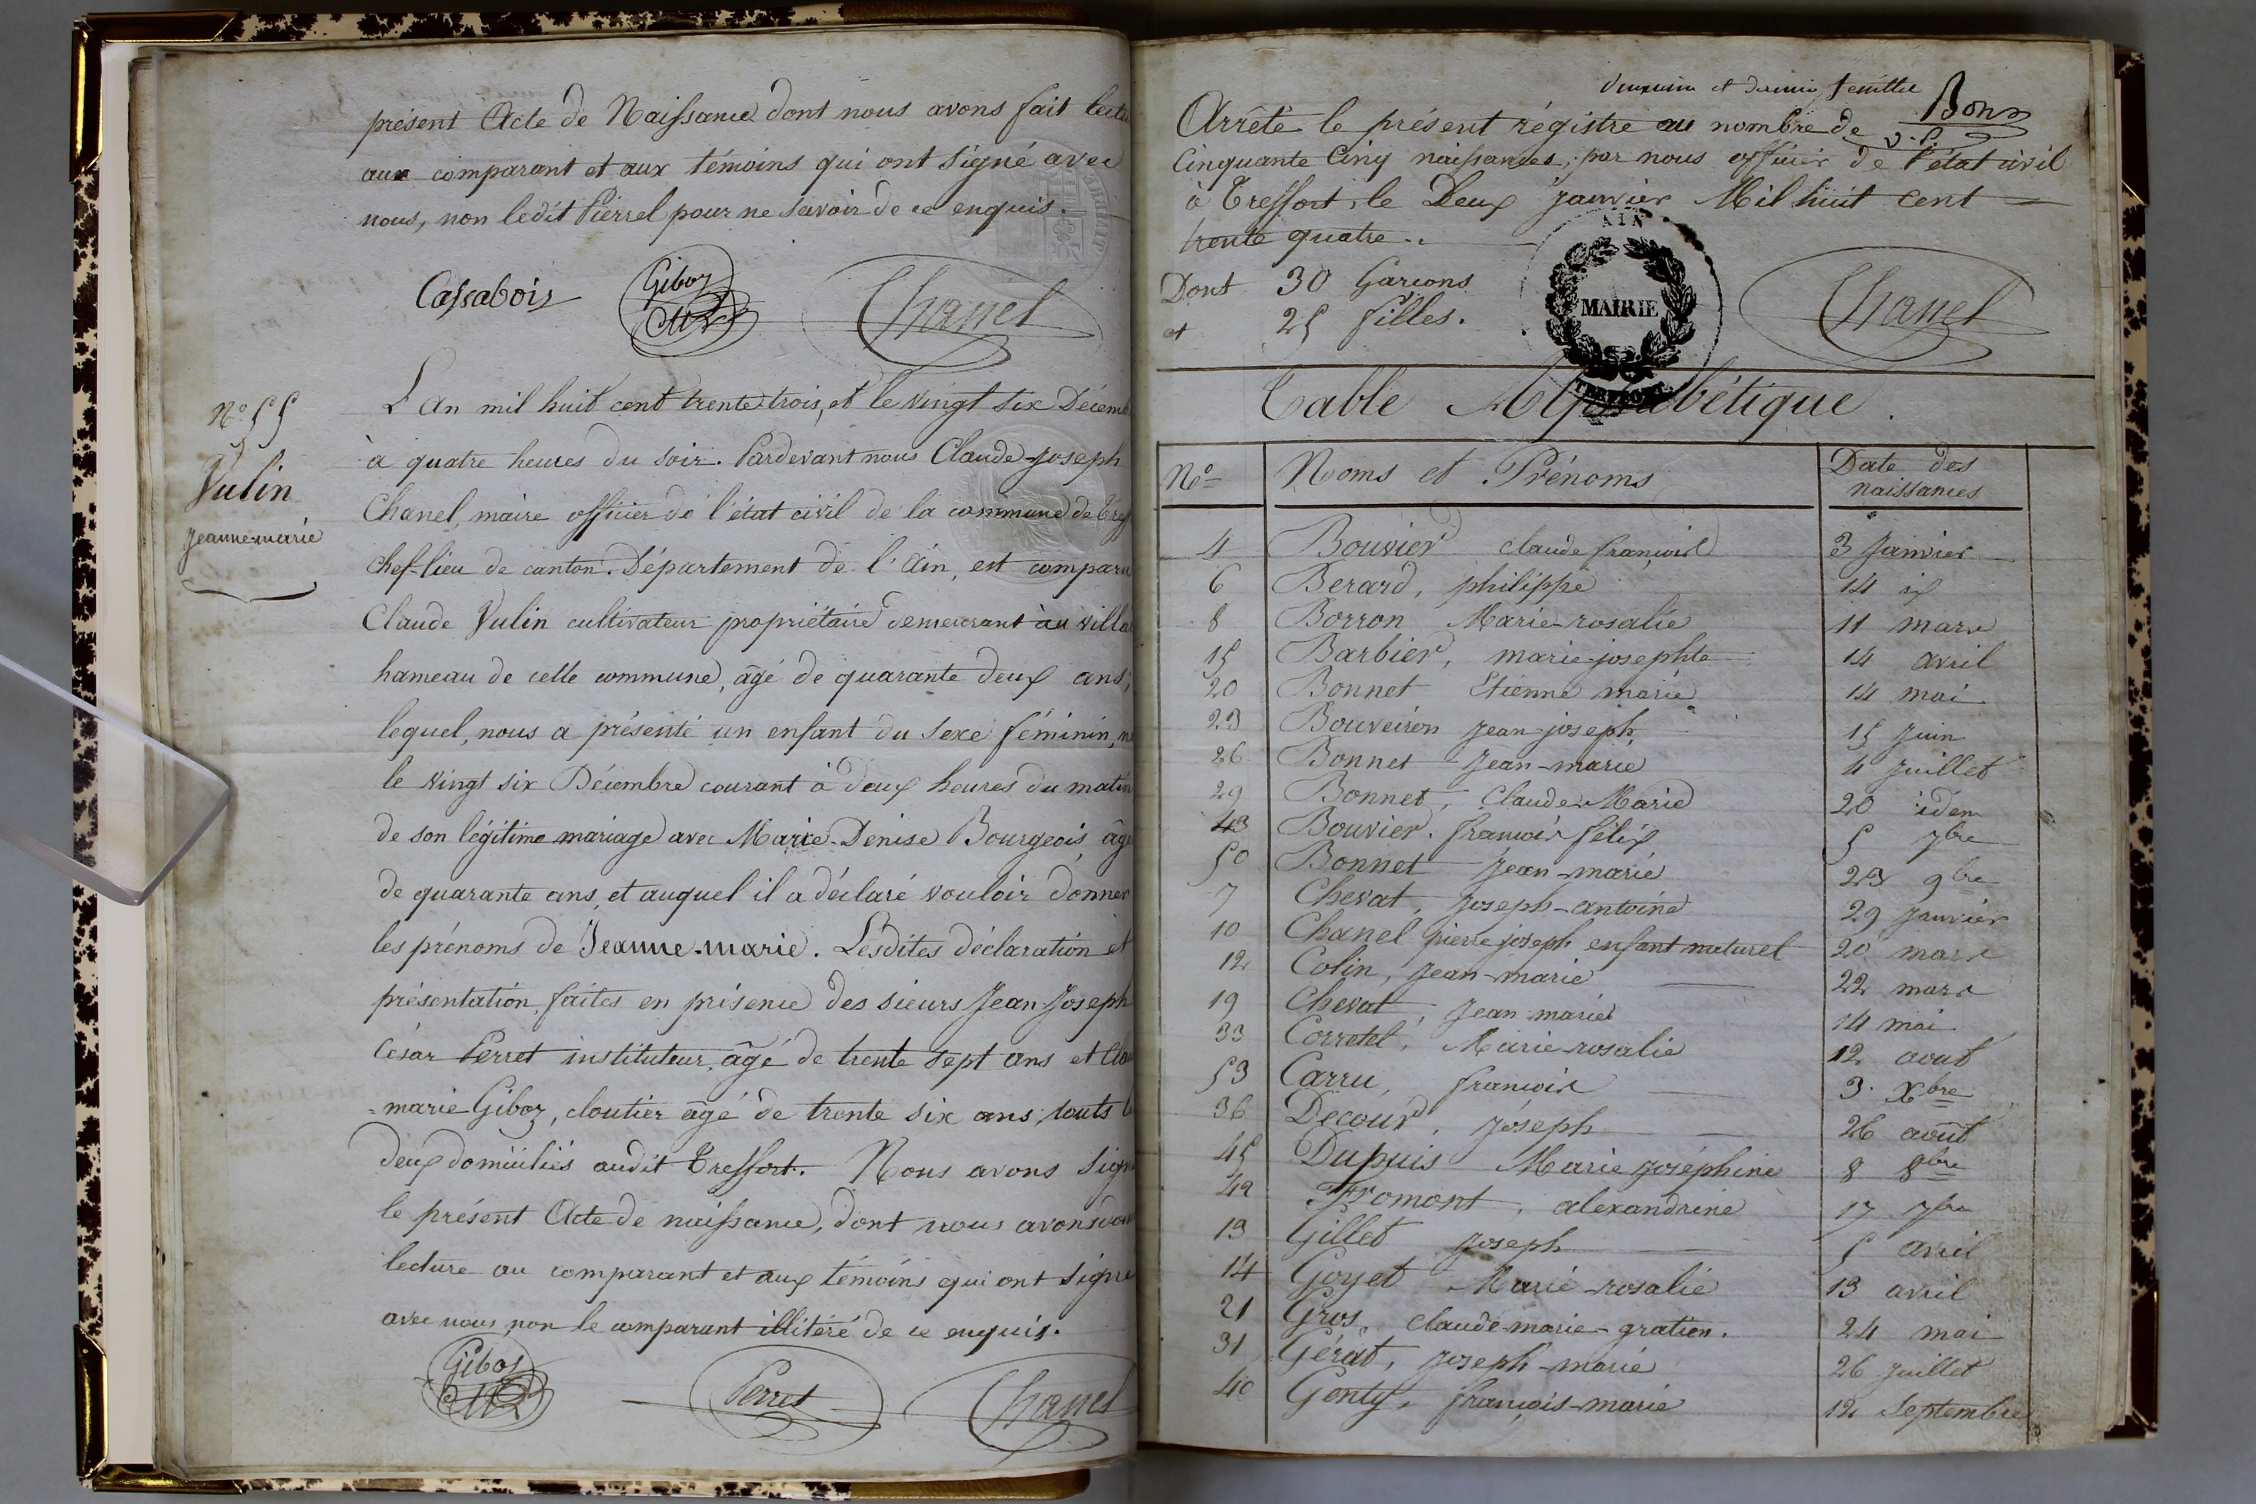 présent Acte de Naissance dont nous avons fait lectu
aux comparant et aux témoins qui ont signé avec
nous, non ledit Pierrel pour ne savoir de ce enquis.
Cassabois Giboz Chanel
N° 55
Vulin
jeanne-marie
L'an mil huit cent trente trois, et le vingt six Décemb
à quatre heures du soir. Pardevant nous Claude-Joseph
Chanel, maire officier de l'état civil de la commune de Treff
chef-lieu de canton. Département de l'Ain, est comparu
Claude Vulin cultivateur propriétaire demeurant au villa
hameau de celle commune, âgé de quarante deux ans,
lequel, nous a présenté un enfant du sexe féminin, n
le vingt six Décembre courant à deux heures du matin
de son légitime mariage avec Marie-Denise Bourgeois, âg
de quarante ans, et auquel il a déclaré vouloir donner
les prénoms de Jeanne-marie. Lesdites déclaration et
présentation, faites en présence des sieurs Jean-Joseph
César Perret instituteur, âgé de trente sept ans et Cla
-marie Giboz, cloutier âgé de trente six ans, touts l
deux domiciliés audit Treffort. Nous avons sign
le présent Acte de naissance, dont nous avons don
lecture au comparant et aux témoins qui ont signé
avec nous non le comparant illiteré de ce enquis.
Giboz Perret Chanel
et feuillet
Arrêté le présent régistre au nombre de
cinquante Cinq naissances, par nous officier de l'état civil
à Treffort, le Deux janvier Mil huit cent
trente quatre..
Dont 30 Garçons
et 25 filles.
AIN
MAIRIE
Chanel
Table Alphabétique.
N° Noms et Prénoms Date des naissances
4 Bouvier claude françois 3 Janvier
6 Berard, philippe 14 id
8 Borron Marie-rosalie 11 mars
15 Barbier, marie-josephte 14 avril
20 Bonnet Etienne marie 14 mai
23 Bouveiron jean-joseph 15 Juin
26 Bonnet Jean-marie 4 Juillet
29 Bonnet, Claude-Marie 20 idem
43 Bouvier. françois félix 5 7bre
50 Bonnet Jean-marie 23 9bre
7 Chevat, Joseph-antoine 29 Janvier
10 Chanel pierre joseph enfant naturel 20 mars
12 Colin, jean-marie 22 mars
19 Chevat, Jean marie 14 mai
33 Corretel, Marie-rosalie 12 aout
53 Carru, françois 3. Xbre
36 Decour, Joseph 26 août
45 Dupuis Marie Joséphine 8 8bre
42 Fromont, alexandrine 17 7bre
13 Gillet joseph 5 avril
14 Goyet Marie-rosalie 13 avril
21 Gros, claude-marie-gratien. 24 mai
31 Gérat, joseph-marie 26 juillet
40 Genty, françois-marie 12 Septembre